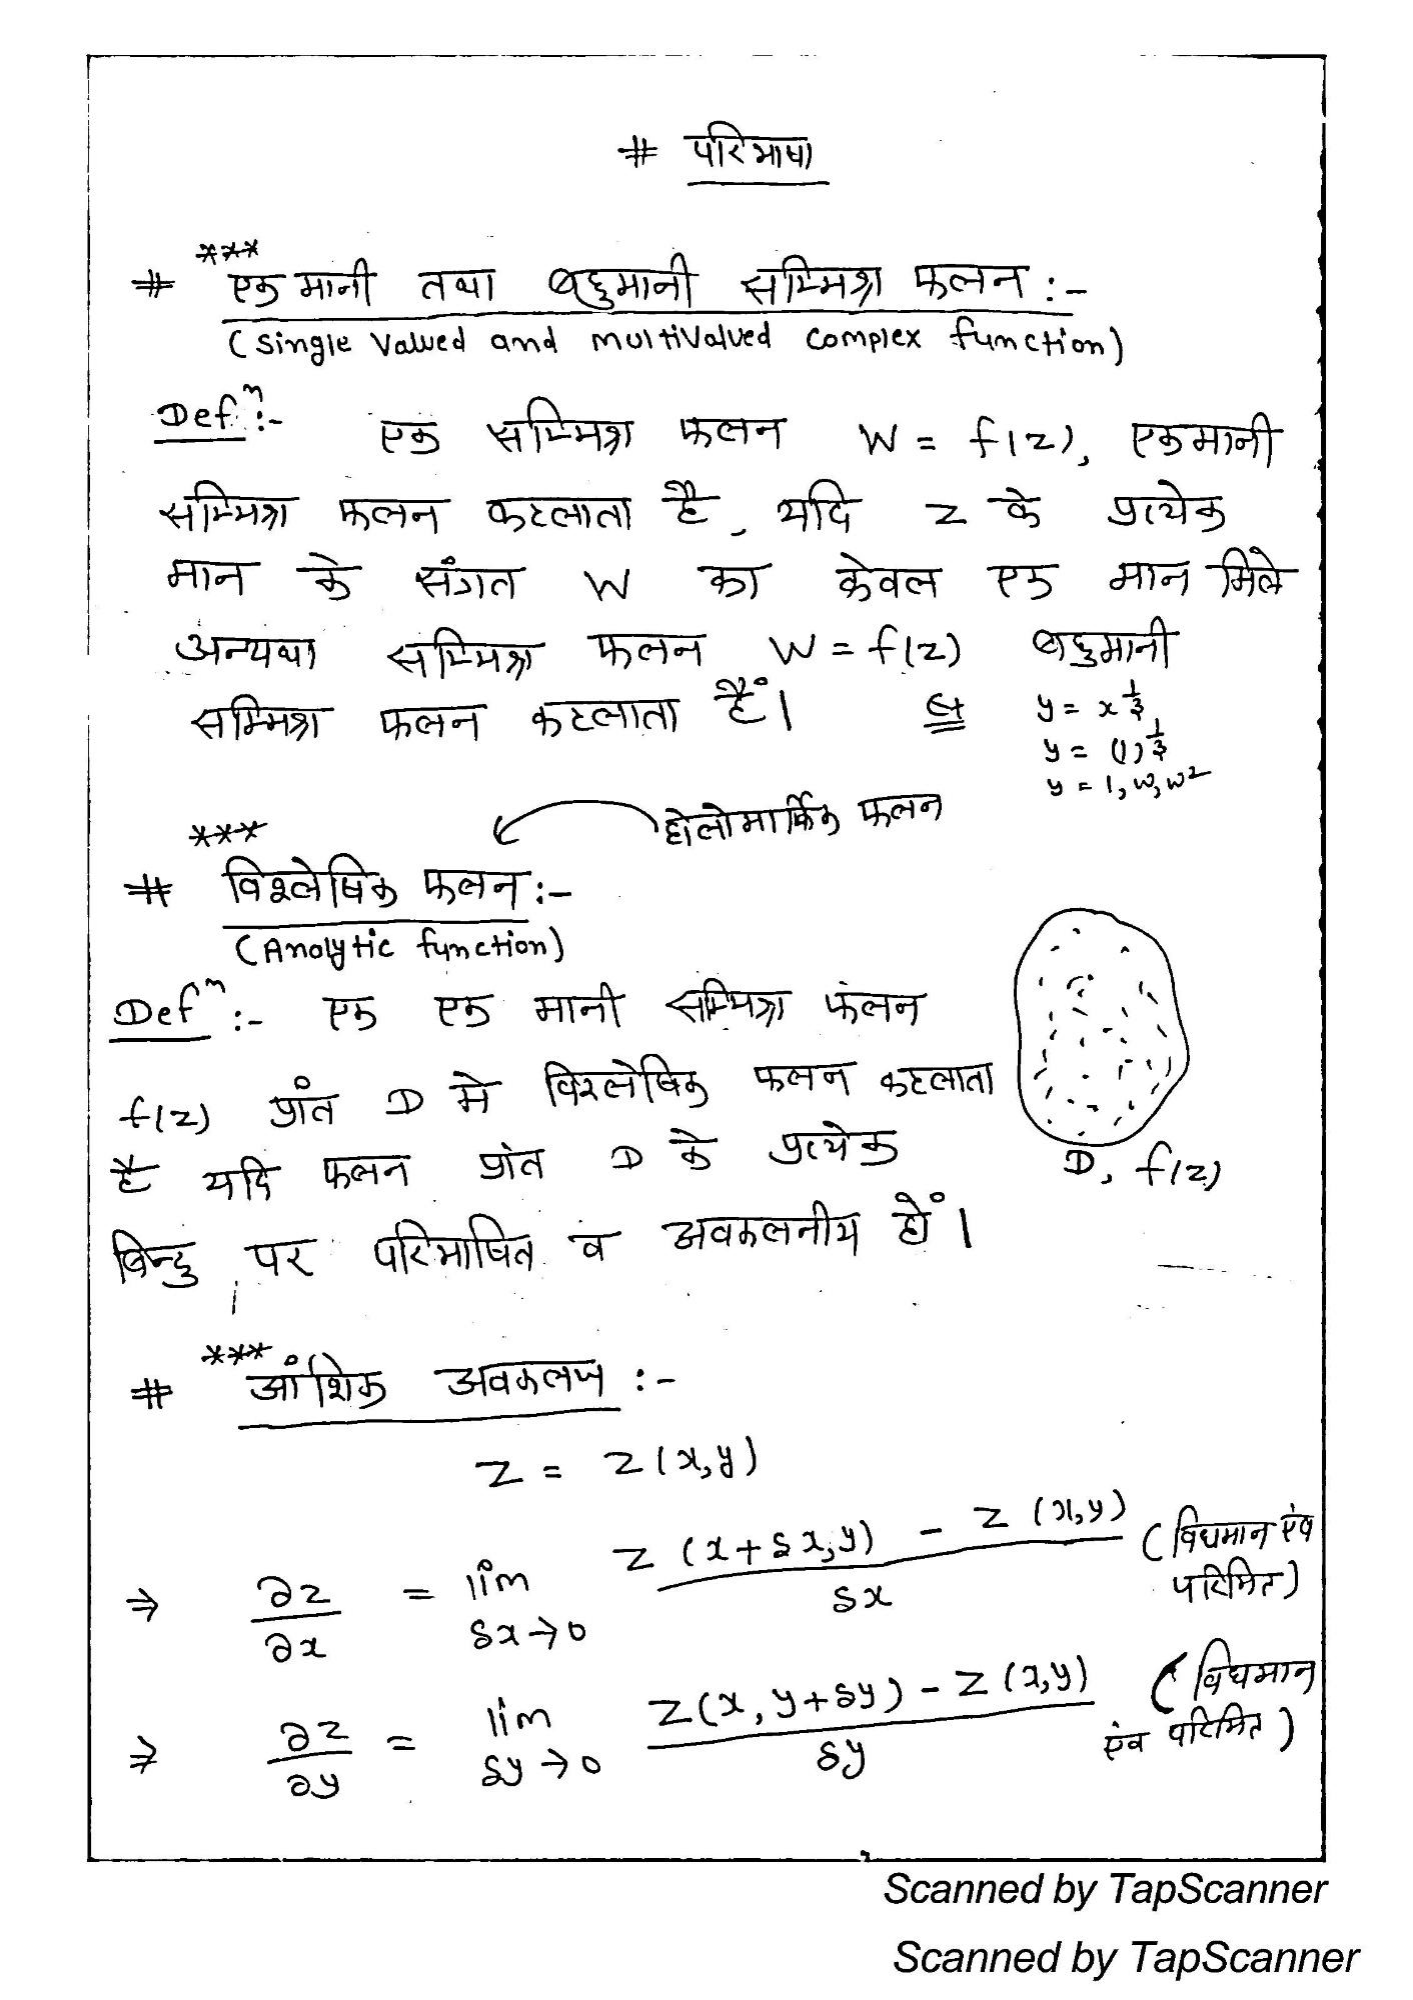 # परिभाषा
***
# एकमानी तथा बहुमानी सम्मिश्र फलन :-
(Single valued and multivalued complex function)
Defⁿ:- एक सम्मिश्र फलन W = f(z), एकमानी
सम्मिश्र फलन कहलाता है, यदि z के प्रत्येक
मान के संगत W का केवल एक मान मिले
अन्यथा सम्मिश्र फलन W = f(z) बहुमानी
सम्मिश्र फलन कहलाता हैं।
y = x^(1/3)
y = (1)^(1/3)
y = 1, w, w²
*** होलोमार्फिक फलन
# विश्लेषिक फलन :-
(Analytic function)
Defⁿ :- एक एक मानी सम्मिश्र फलन
f(z) प्रांत D मे विश्लेषिक फलन कहलाता
है यदि फलन प्रांत D के प्रत्येक
बिन्दु पर परिभाषित व अवकलनीय हों।
D, f(z)
***
# आंशिक अवकलज :-
z = z(x,y)
⇒ ∂z/∂x = lim δx→0 z(x+δx,y) - z(x,y) / δx (विद्यमान एंव परिमित)
⇒ ∂z/∂y = lim δy→0 z(x, y+δy) - z(x,y) / δy (विद्यमान एंव परिमित)
Scanned by TapScanner
Scanned by TapScanner